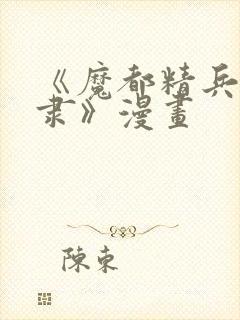 《魔都精兵
隶》漫畫
陳東